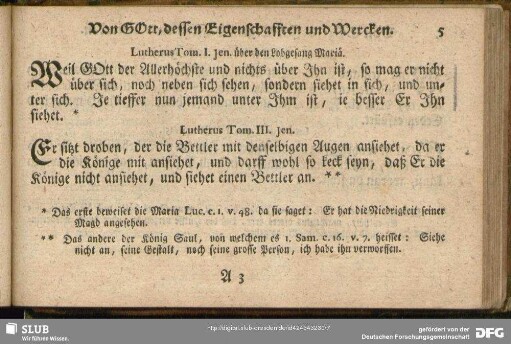 Von GOtt, dessen Eigenschafften und Wercken. 5
Lutherus Tom. I. Jen. über den Lobgesang Mariä.
Weil GOtt der Allerhöchste und nichts über Ihn ist, so mag er nicht
über sich, noch neben sich sehen, sondern siehet in sich, und un-
ter sich. Je tieffer nun jemand unter Ihm ist, ie besser Er Ihn
siehet. *
Lutherus Tom. III. Jen.
Er sitzt droben, der die Bettler mit denselbigen Augen ansiehet, da er
die Könige mit ansiehet, und darff wohl so keck seyn, daß Er die
Könige nicht ansiehet, und siehet einen Bettler an. **
* Das erste beweiset die Maria Luc. c. 1. v. 48. da sie saget: Er hat die Niedrigkeit seiner
Magd angesehen.
** Das andere der König Saul, von welchem es 1. Sam. c. 16. v. 7. heisset: Siehe
nicht an, seine Gestalt, noch seine grosse Person, ich habe ihn verworffen.
A 3
SLUB
Wir führen Wissen.
gefördert von der
Deutschen Forschungsgemeinschaft
DFG